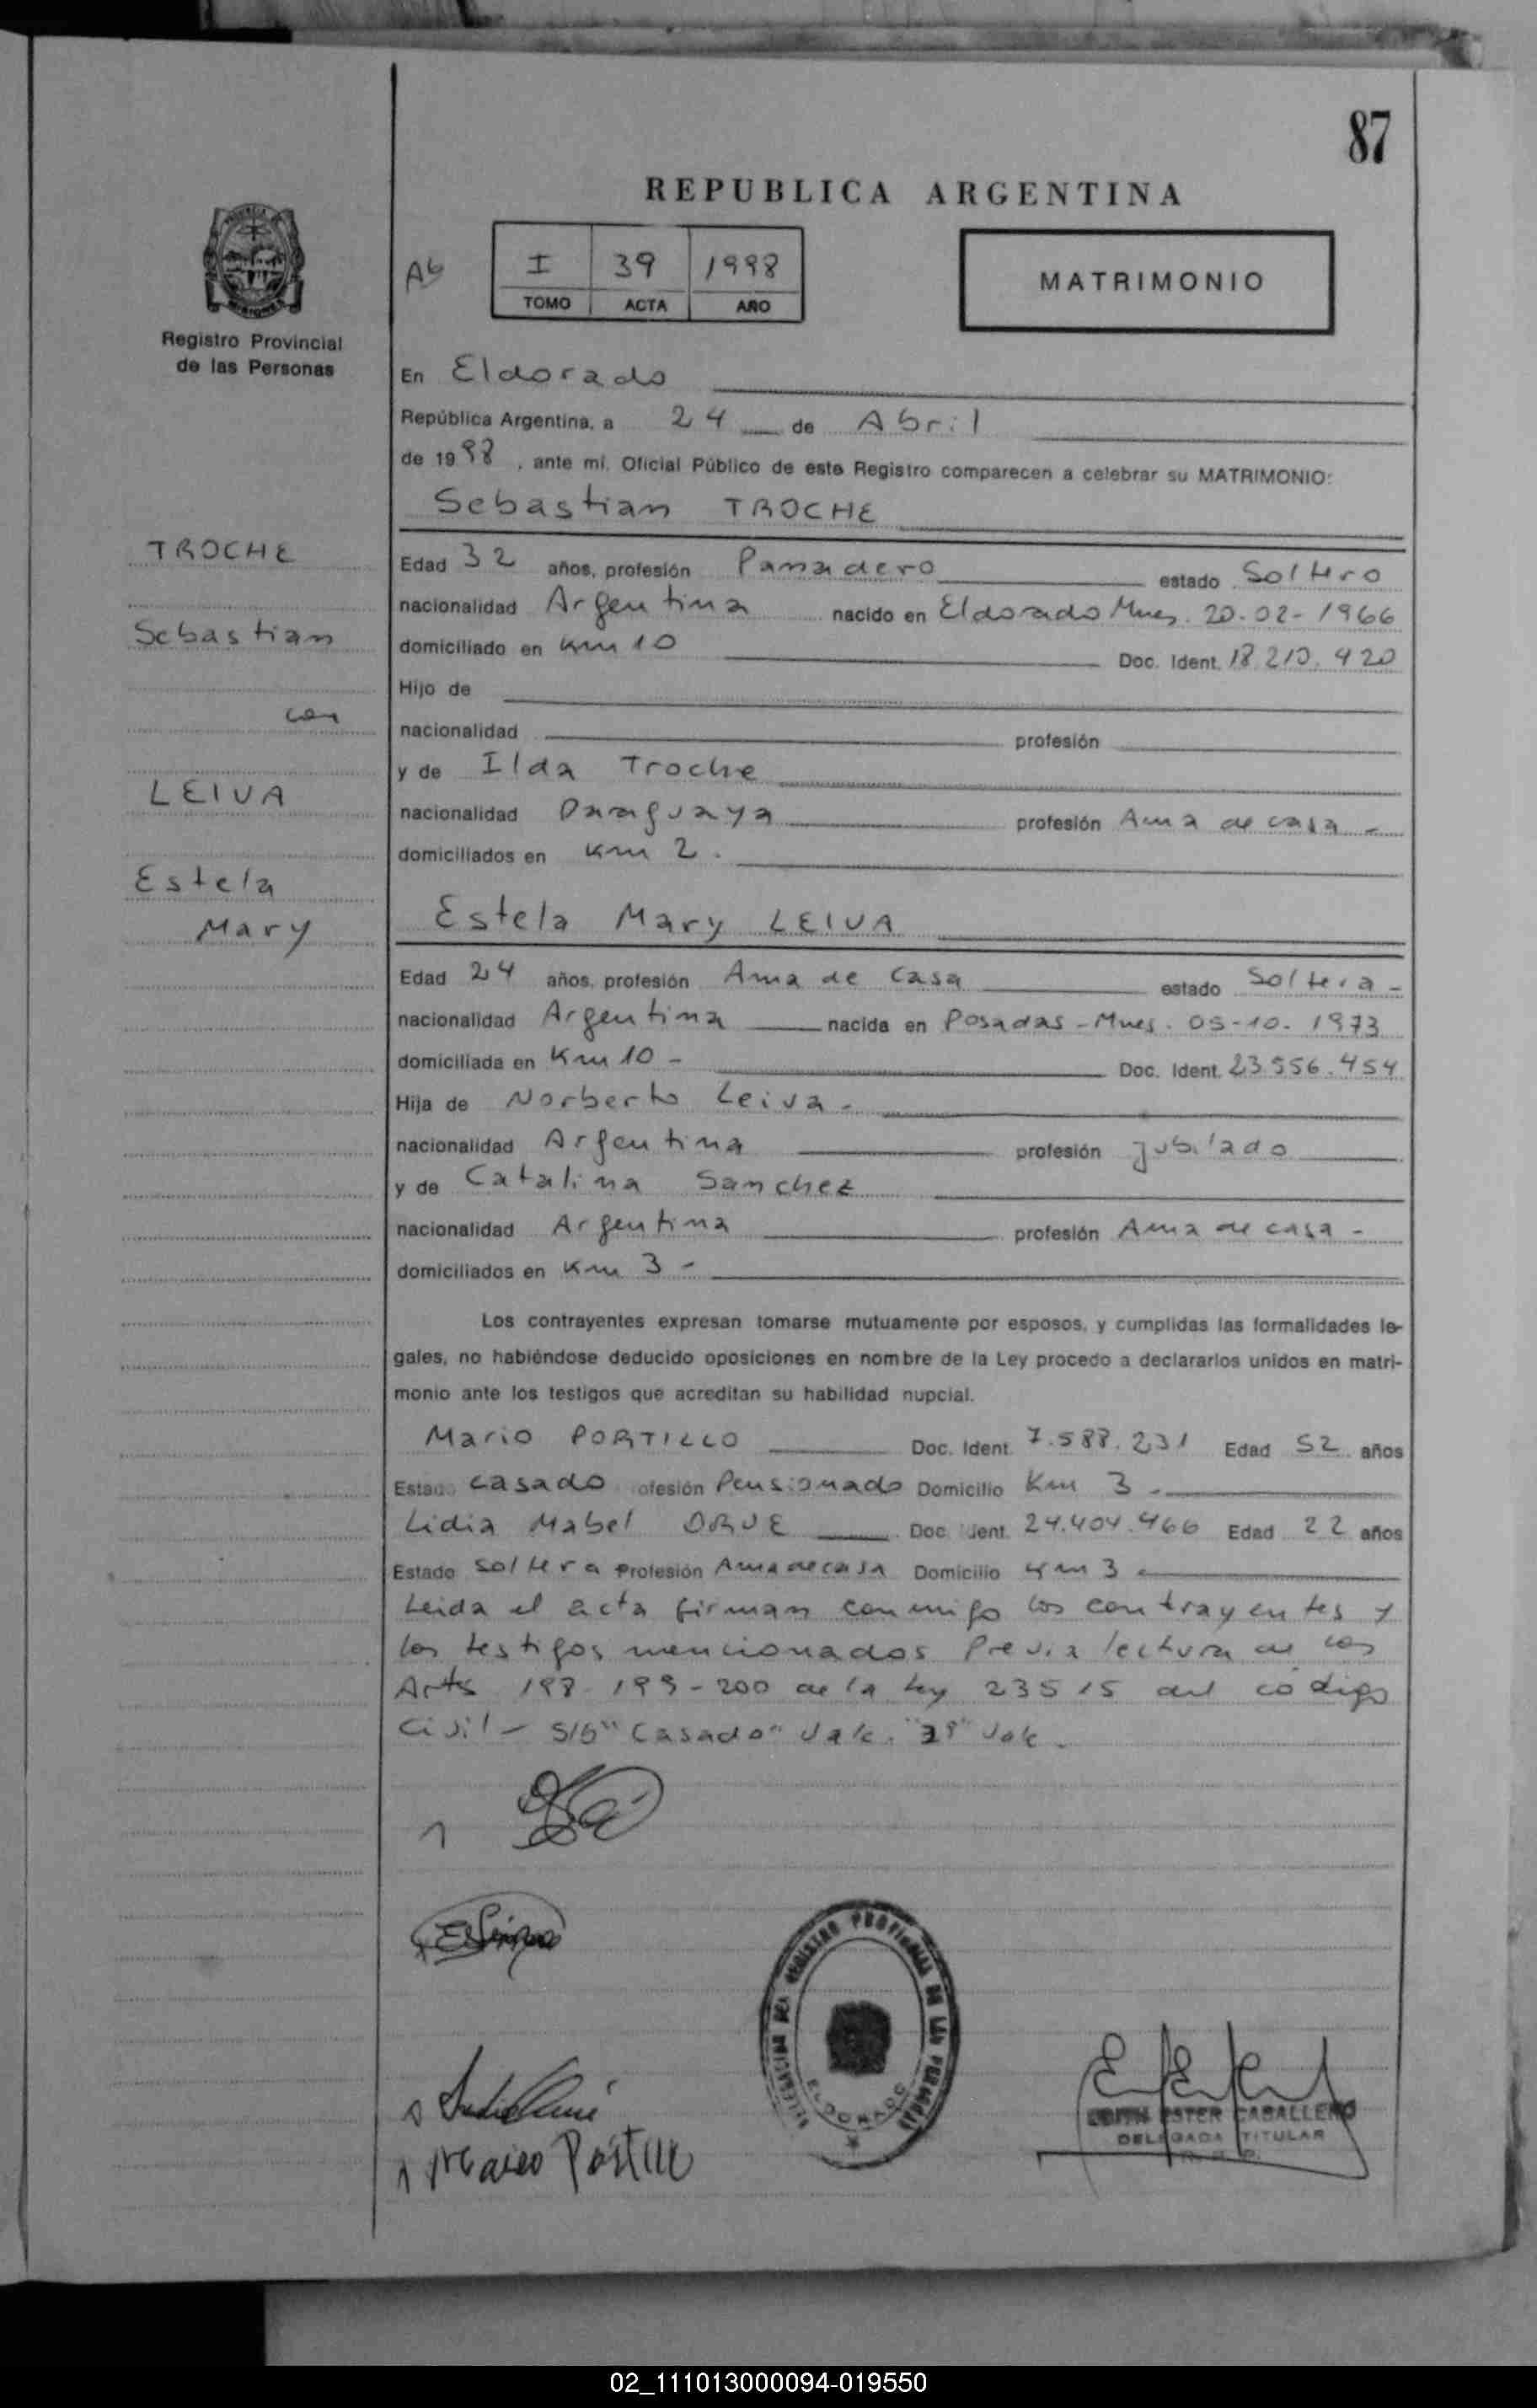 87
REPUBLICA ARGENTINA
Registro Provincial
de las Personas
I 39 1998
TOMO ACTA AÑO
MATRIMONIO
En Eldorado
República Argentina, a 24 de Abril
de 1998, ante mí, Oficial Público de este Registro comparecen a celebrar su MATRIMONIO:
Sebastian TROCHE
TROCHE
Sebastian
con
LEIVA
Estela
Mary
Edad 32 años, profesión Panadero estado Soltero
nacionalidad Argentina nacido en Eldorado Mnes. 20-02-1966
domiciliado en Km 10 Doc. Ident. 18.210.420
Hijo de
nacionalidad profesión
y de Ilda Troche
nacionalidad Paraguaya profesión Ama de casa -
domiciliados en Km 2.
Estela Mary LEIVA
Edad 24 años, profesión Ama de Casa estado Soltera -
nacionalidad Argentina nacida en Posadas - Mnes. 05-10-1973
domiciliada en Km 10 - Doc. Ident. 23.556.454
Hija de Norberto Leiva -
nacionalidad Argentina profesión jubilado
y de Catalina Sanchez
nacionalidad Argentina profesión Ama de casa -
domiciliados en Km 3 -
Los contrayentes expresan tomarse mutuamente por esposos, y cumplidas las formalidades le-
gales, no habiéndose deducido oposiciones en nombre de la Ley procedo a declararlos unidos en matri-
monio ante los testigos que acreditan su habilidad nupcial.
Mario PORTILLO Doc. Ident. 7.588.231 Edad 52 años
Estado Casado ofesión Pensionado Domicilio Km 3 -
Lidia Mabel ORUE Doc. Ident. 24.404.466 Edad 22 años
Estado Soltera Profesión Ama de casa Domicilio Km 3 -
Leida el acta firman conmigo los contrayentes y
los testigos mencionados Previa lectura de los
Arts 198-199-200 de la Ley 23515 del codigo
Civil - S/b "Casado" Vale. Vale -
Mario Portillo
DELEGACION DEL REGISTRO PROVINCIAL DE LAS PERSONAS
ELDORADO
EDITH ESTER CABALLERO
DELEGADA TITULAR
02_111013000094-019550